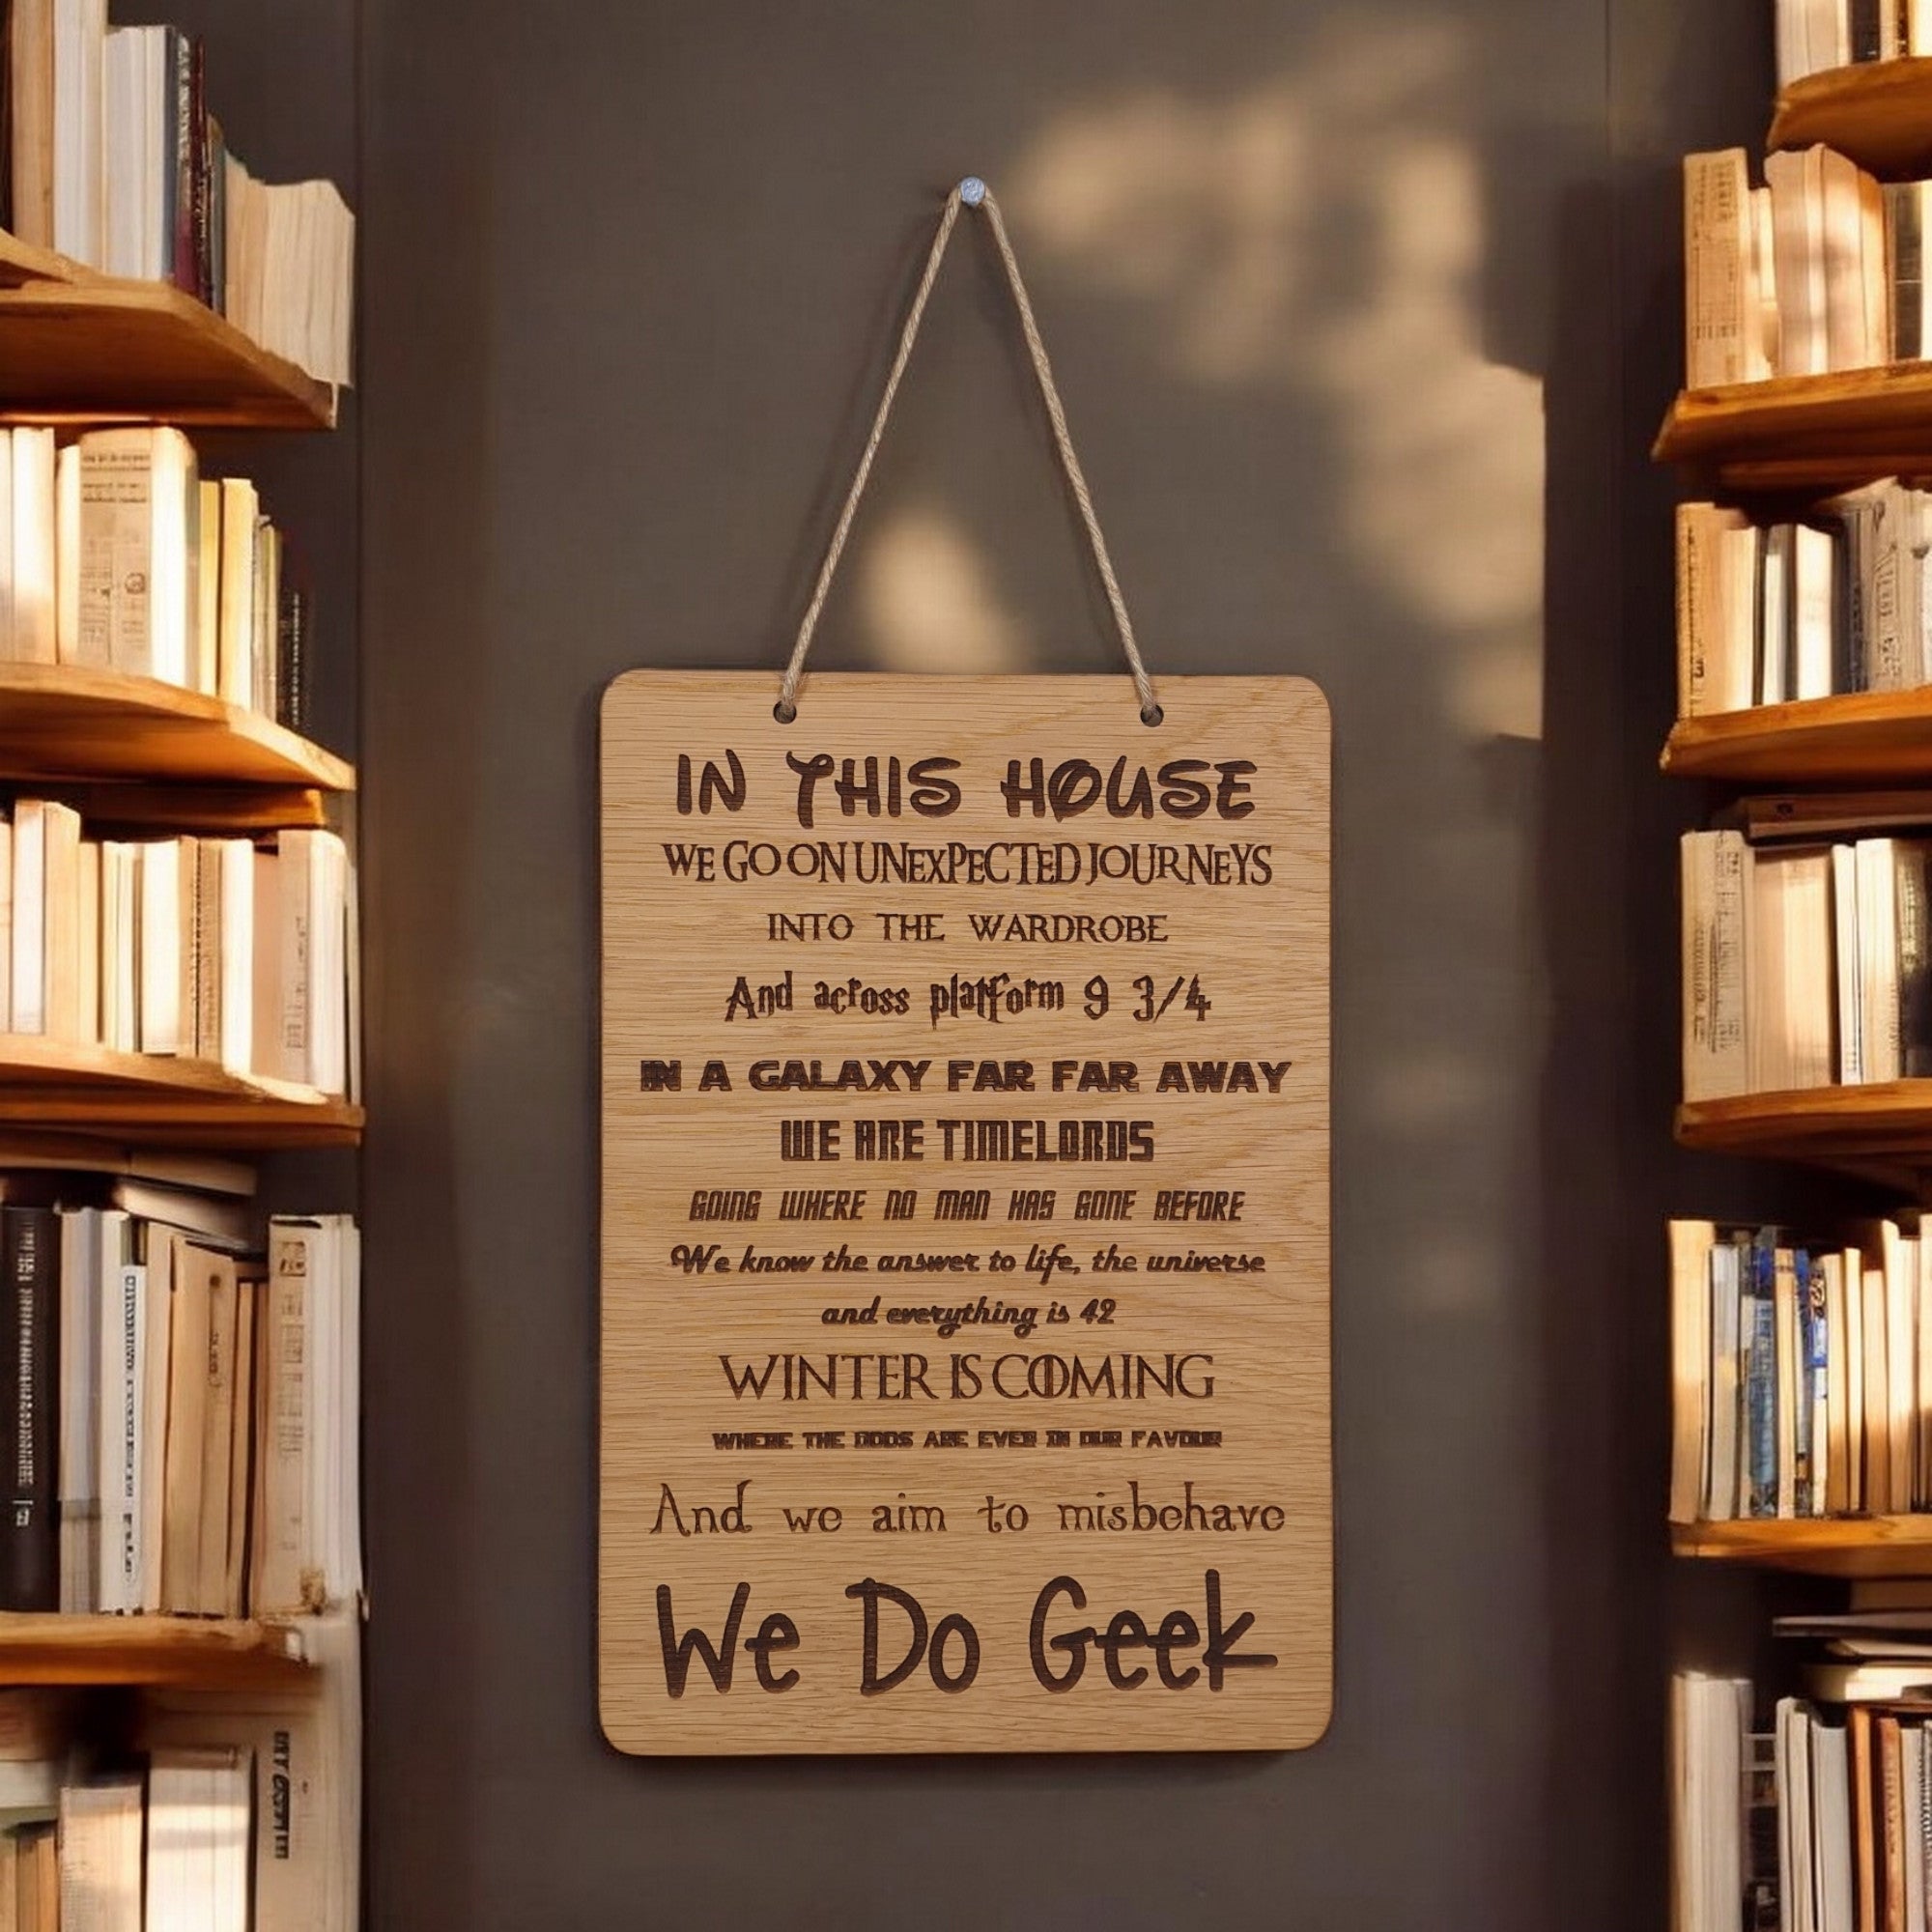 IN THIS HOUSE
WE GO ON UNEXPECTED JOURNEYS
INTO THE WARDROBE
And across platform 9 3/4
IN A GALAXY FAR FAR AWAY
WE ARE TIMELORDS
GOING WHERE NO MAN HAS GONE BEFORE
We know the answer to life, the universe
and everything is 42
WINTER IS COMING
WHERE THE ODDS ARE EVER IN OUR FAVOUR
And we aim to misbehave
We Do Geek